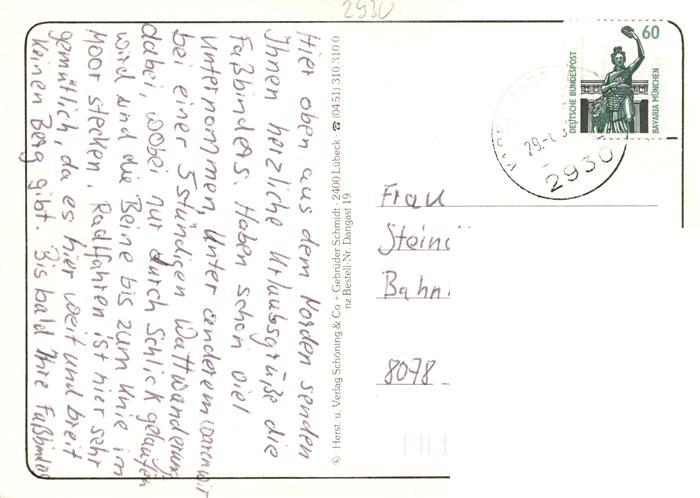 2930
Hier oben aus dem Norden senden
Ihnen herzliche Urlaubsgrüße die
Fußbinders. Haben schon viel
unternommen, Unter anderem waren wir
bei einer 5stündigen Wattwanderung
dabei, wobei nur durch Schlick gelaufen
wird und die Beine bis zum Knie im
Moor stecken. Radlfahren ist hier sehr
gemütlich, da es hier weit und breit
keinen Berg gibt. Bis bald Ihre Fußbinder
© Herst. u. Verlag Schöning & Co + Gebrüder Schmidt · 2400 Lübeck · ☎ (0451) 310 310 0
nz Bestell-Nr. Dangast 19
60
DEUTSCHE BUNDESPOST
BAVARIA MÜNCHEN
2930
Frau
Stein
Bahn
8078